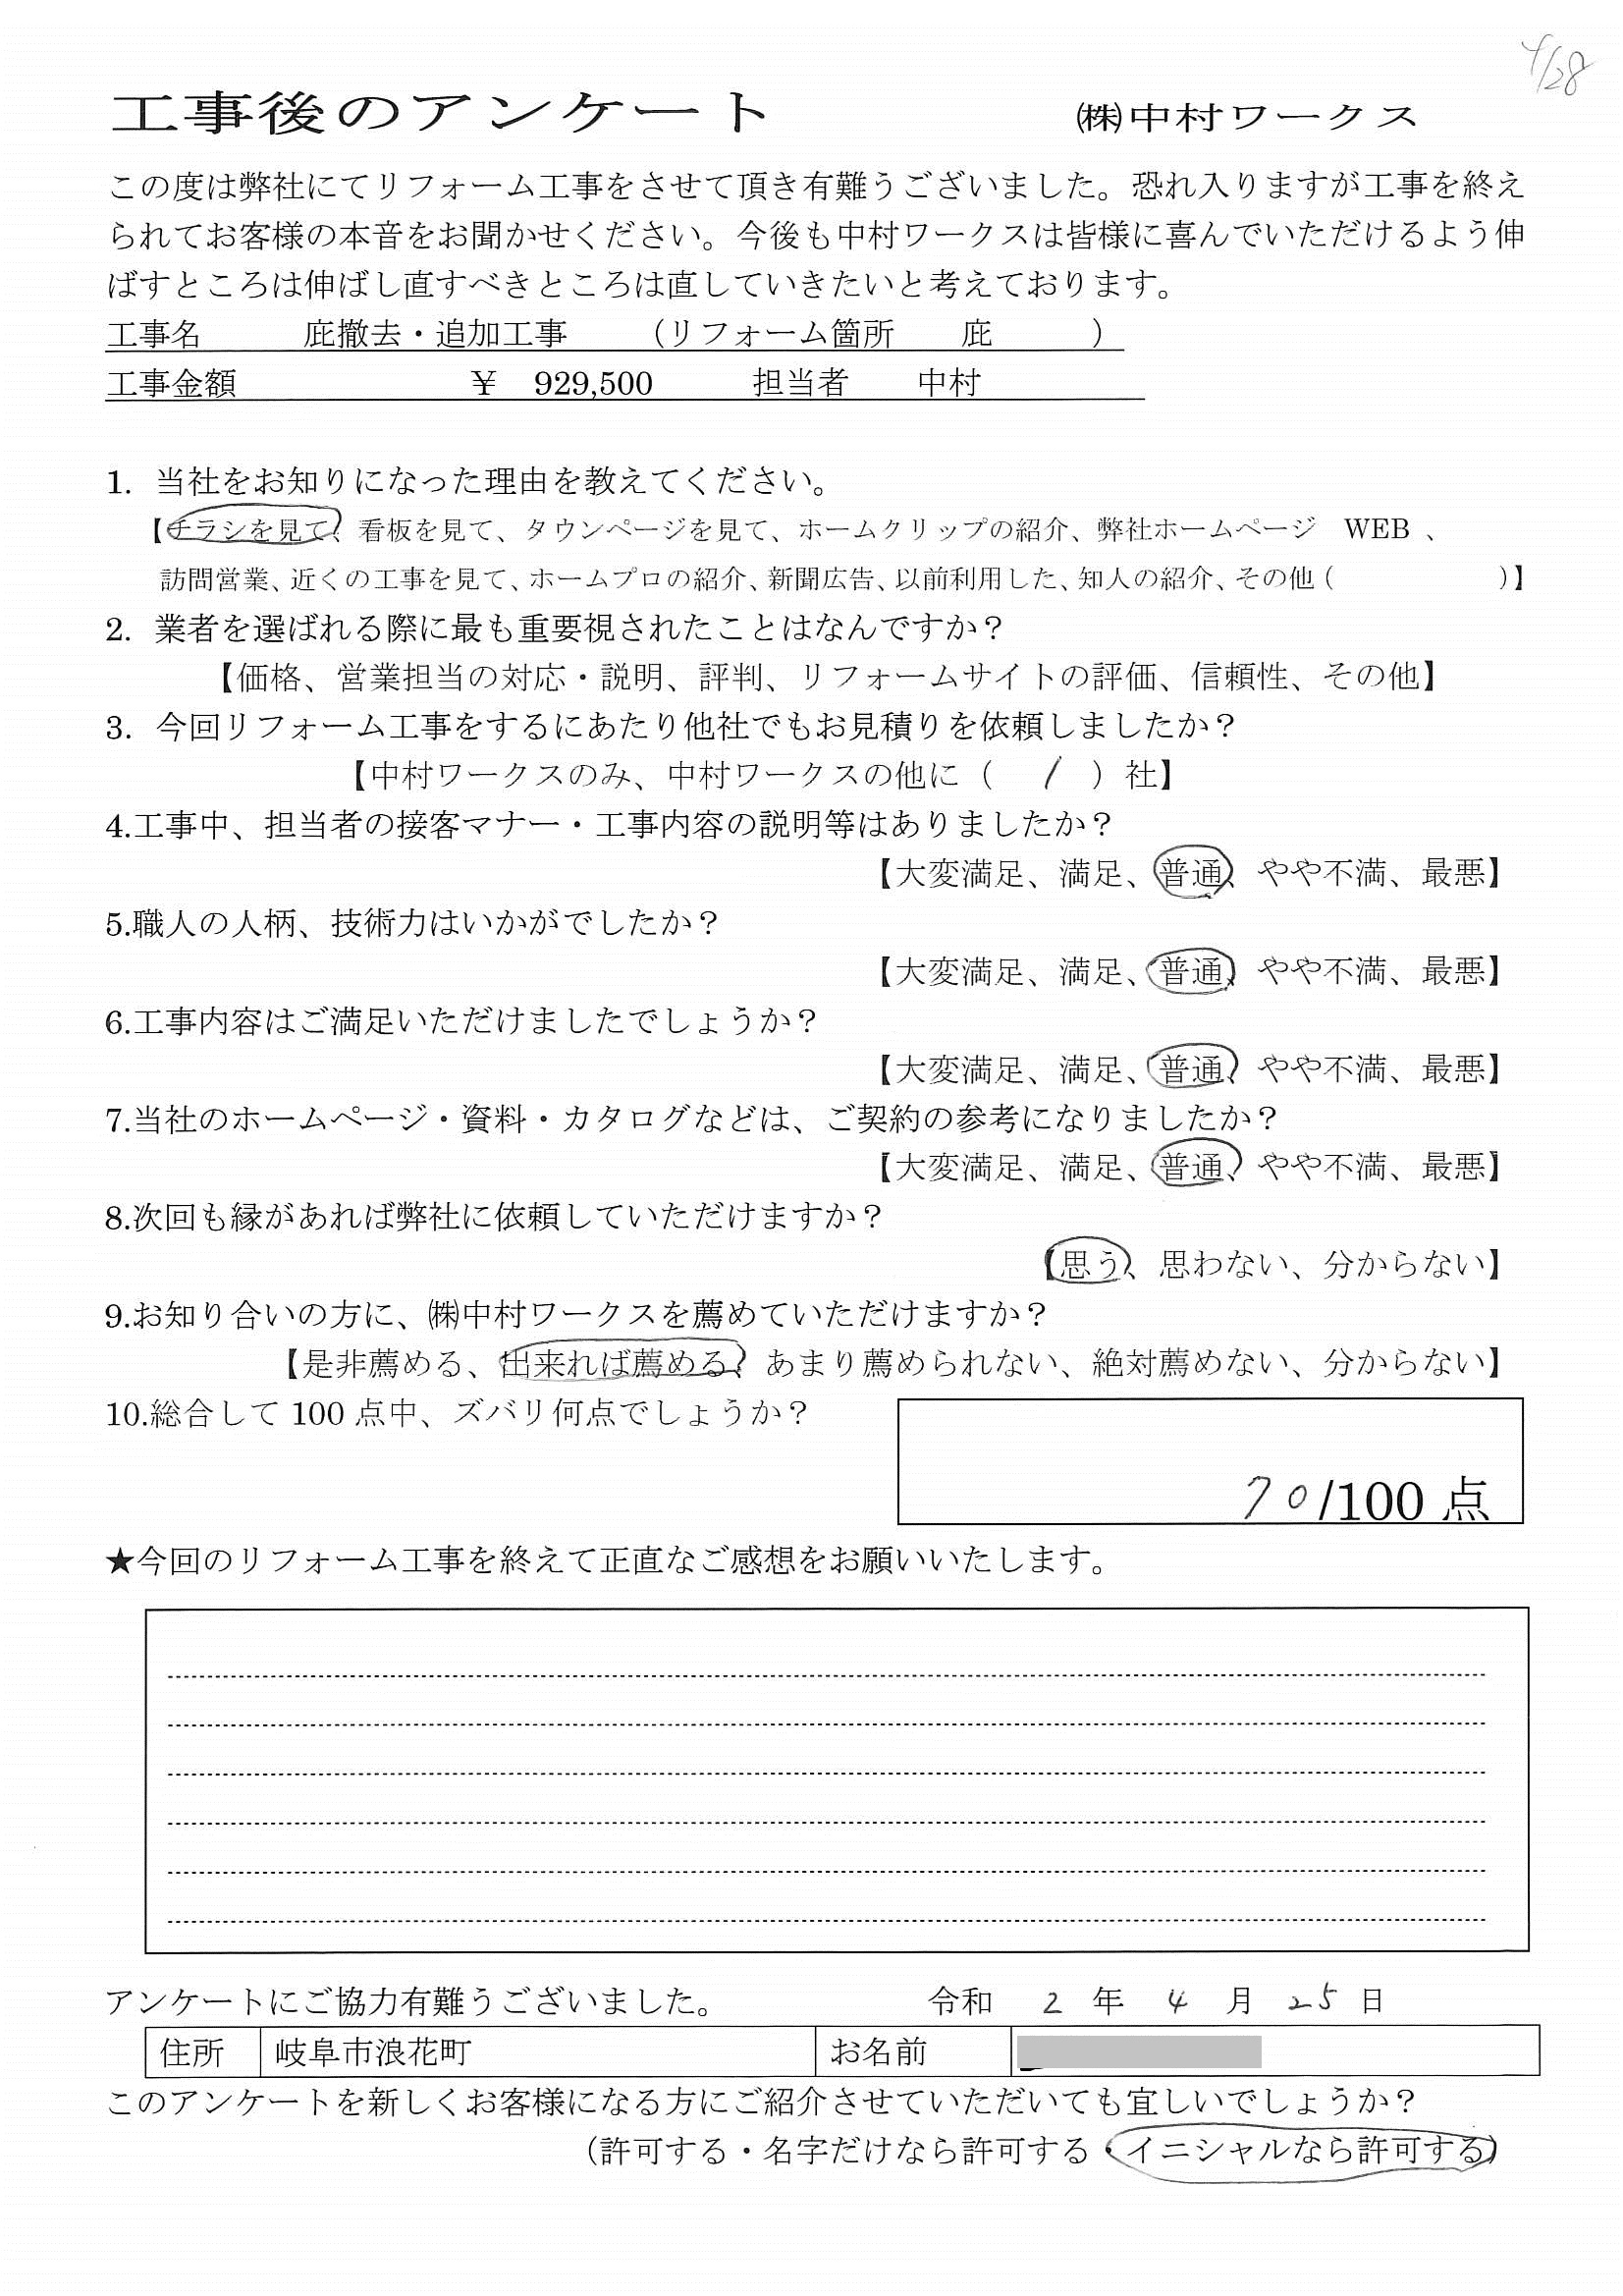 4/28
工事後のアンケート　㈱中村ワークス
この度は弊社にてリフォーム工事をさせて頂き有難うございました。恐れ入りますが工事を終え
られてお客様の本音をお聞かせください。今後も中村ワークスは皆様に喜んでいただけるよう伸
ばすところは伸ばし直すべきところは直していきたいと考えております。
工事名　庇撤去・追加工事　（リフォーム箇所　庇　）
工事金額　￥　929,500　担当者　中村
1. 当社をお知りになった理由を教えてください。
【チラシを見て、看板を見て、タウンページを見て、ホームクリップの紹介、弊社ホームページ　WEB 、
訪問営業、近くの工事を見て、ホームプロの紹介、新聞広告、以前利用した、知人の紹介、その他（　）】
2. 業者を選ばれる際に最も重要視されたことはなんですか？
【価格、営業担当の対応・説明、評判、リフォームサイトの評価、信頼性、その他】
3. 今回リフォーム工事をするにあたり他社でもお見積りを依頼しましたか？
【中村ワークスのみ、中村ワークスの他に（　1　）社】
4.工事中、担当者の接客マナー・工事内容の説明等はありましたか？
【大変満足、満足、普通、やや不満、最悪】
5.職人の人柄、技術力はいかがでしたか？
【大変満足、満足、普通、やや不満、最悪】
6.工事内容はご満足いただけましたでしょうか？
【大変満足、満足、普通、やや不満、最悪】
7.当社のホームページ・資料・カタログなどは、ご契約の参考になりましたか？
【大変満足、満足、普通、やや不満、最悪】
8.次回も縁があれば弊社に依頼していただけますか？
【思う、思わない、分からない】
9.お知り合いの方に、㈱中村ワークスを薦めていただけますか？
【是非薦める、出来れば薦める、あまり薦められない、絶対薦めない、分からない】
10.総合して 100 点中、ズバリ何点でしょうか？
70/100 点
★今回のリフォーム工事を終えて正直なご感想をお願いいたします。
アンケートにご協力有難うございました。　令和　2　年　4　月　25　日
住所　岐阜市浪花町　お名前
このアンケートを新しくお客様になる方にご紹介させていただいても宜しいでしょうか？
（許可する・名字だけなら許可する・イニシャルなら許可する）